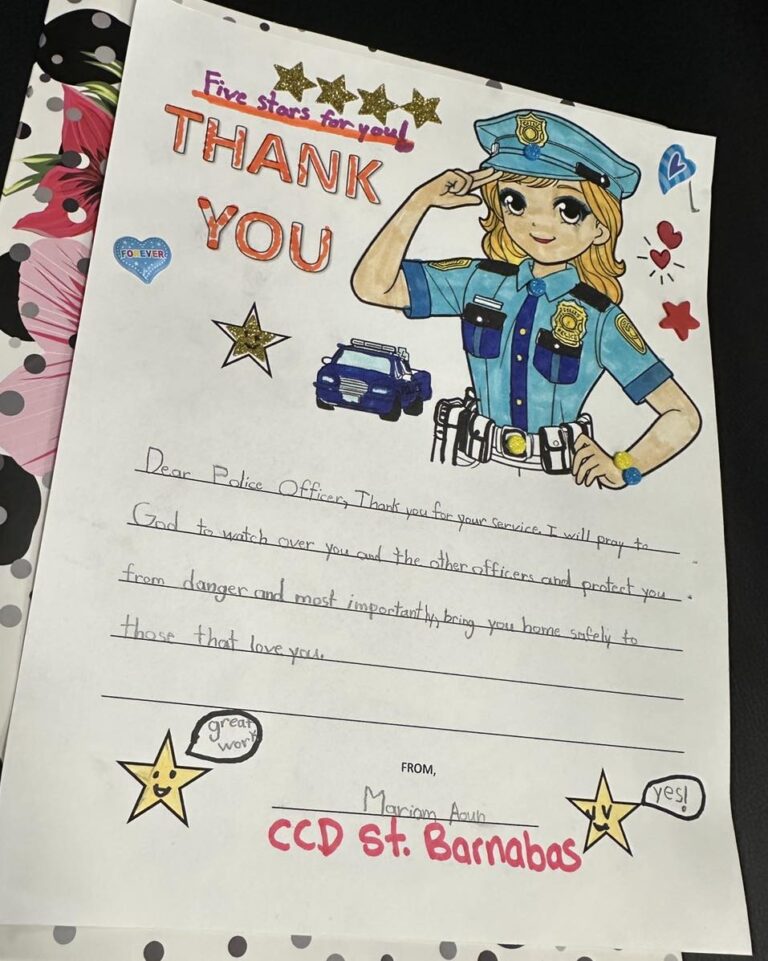 Five stars for you!
THANK
YOU
FOREVER
Dear Police Officer, Thank you for your service. I will pray to
God to watch over you and the other officers and protect you
from danger and most importantly, bring you home safely to
those that love you.
great
work
FROM,
yes!
Mariam Aoun
CCD St. Barnabas